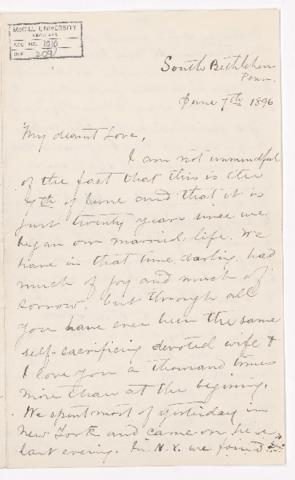 McGILL UNIVERSITY
ARCHIVES
ACC. NO. 1010
REF. 2091
South Bethlehem
Penn.
June 7th 1896
My dearest Love,
I am not unmindful
of the fact that this is the
7th of June and that it is
just twenty years since we
began our married life. We
have in that time darling had
much of joy and much of
sorrow. but through all
you have ever been the same
self-sacrificing devoted wife &
I love you a thousand times
more than at the begining.
We spent most of yesterday in
New York and came on here
last evening. In N.Y. we found